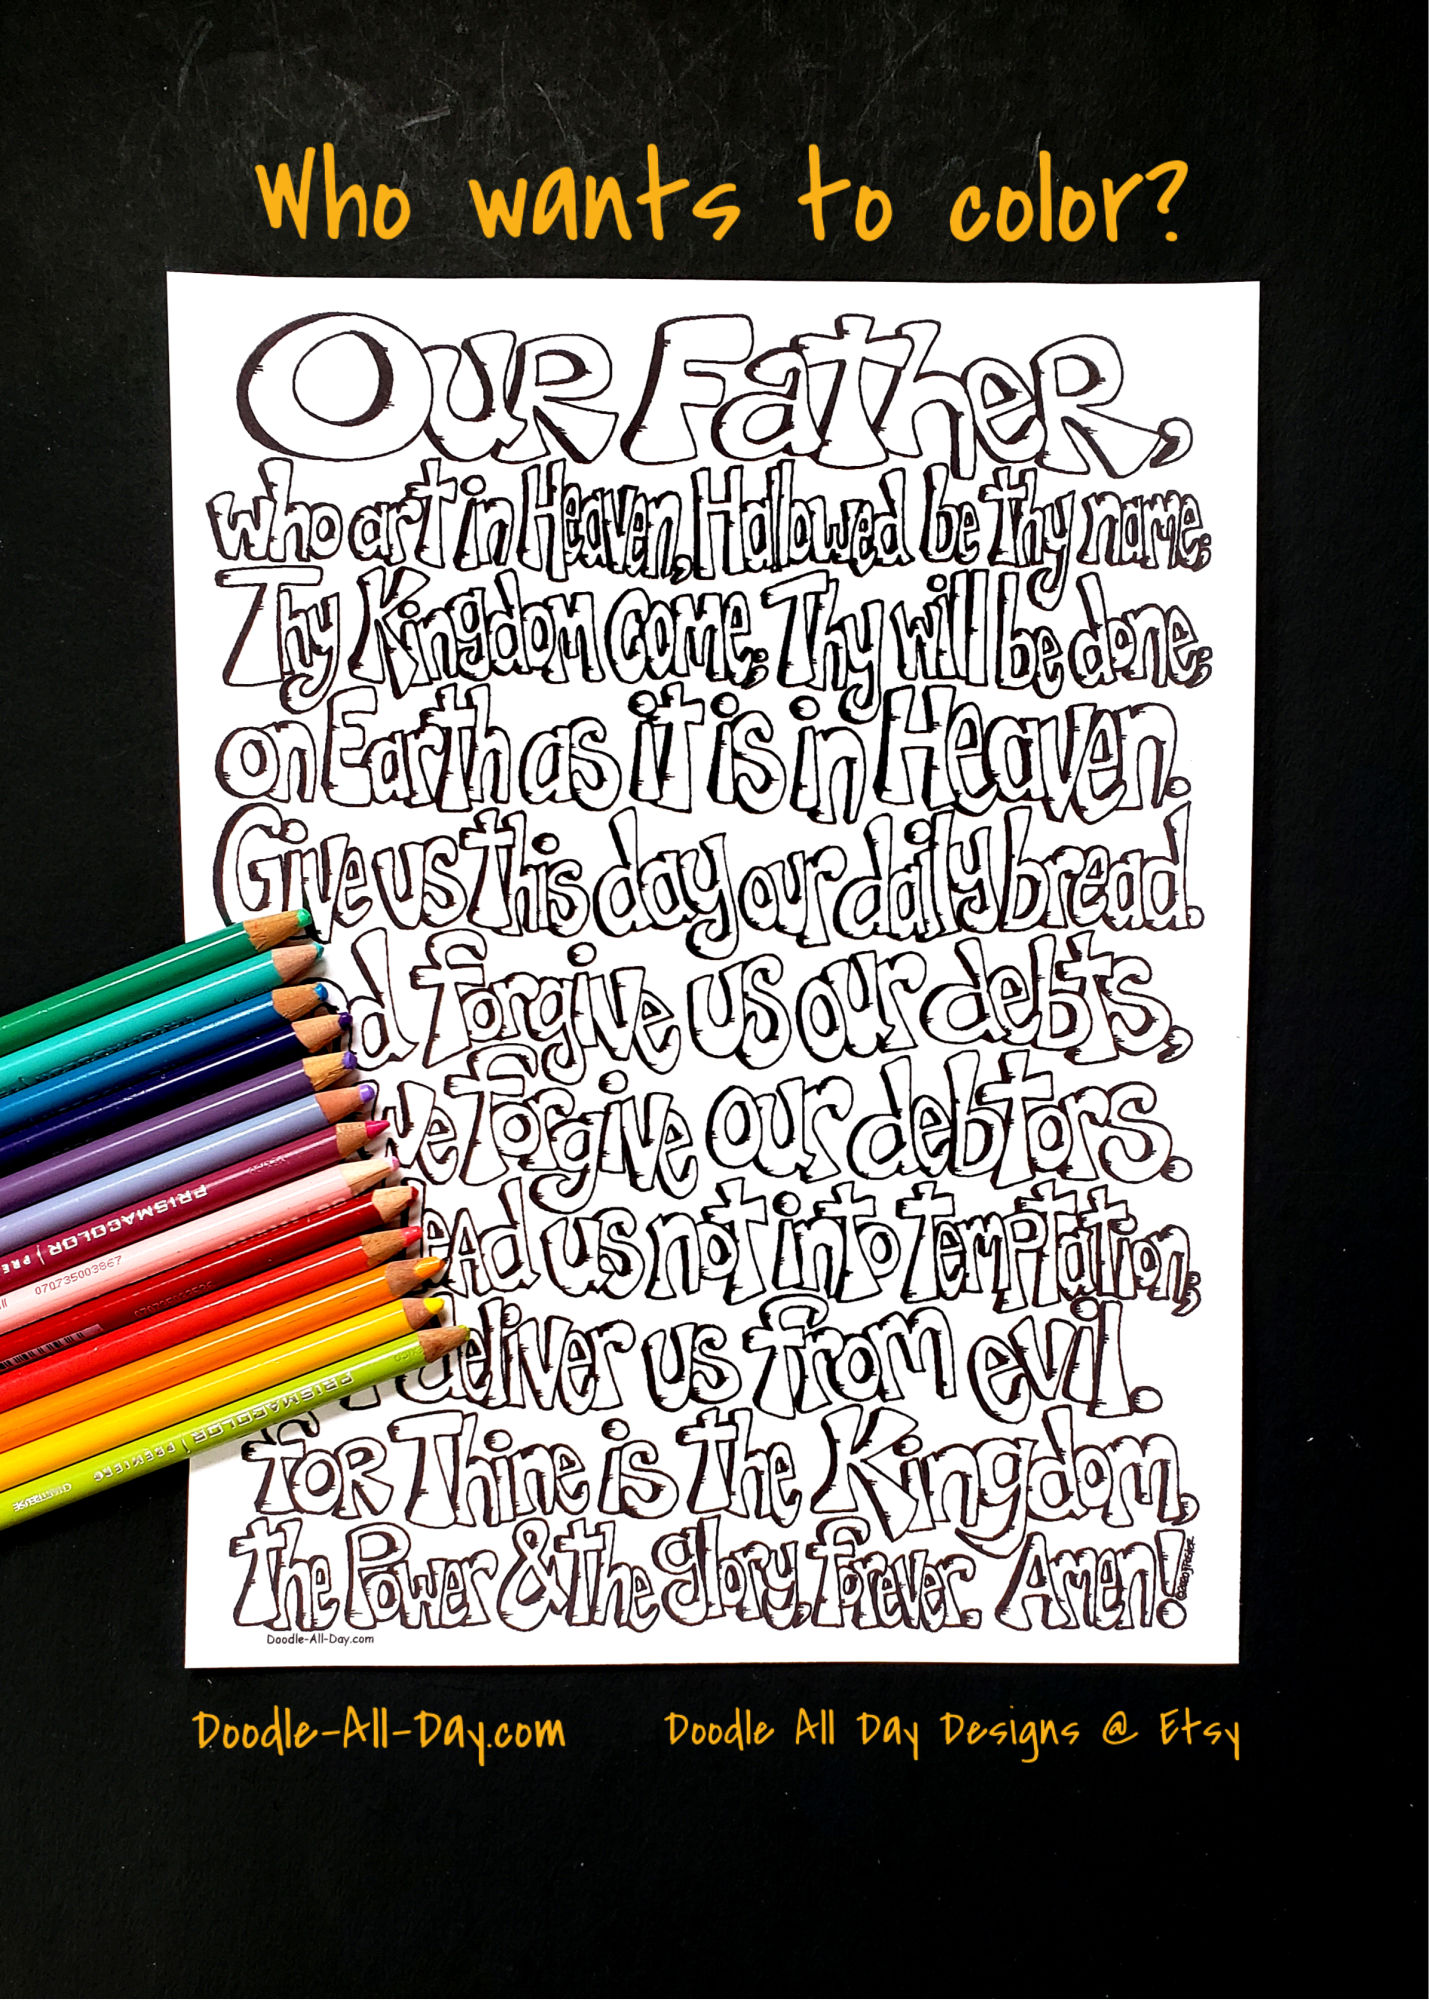 Who wants to color?
Our Father,
who art in Heaven, Hallowed be thy name;
Thy Kingdom come; Thy will be done;
on Earth as it is in Heaven.
Give us this day our daily bread.
forgive us our debts,
we forgive our debtors.
lead us not into temptation,
deliver us from evil.
for Thine is the Kingdom,
the Power & the glory, forever. Amen!
Doodle-All-Day.com
PRISMACOLOR | PRE
070735003867
PRISMACOLOR | PREMIER
CHARTREUSE
Doodle-All-Day.com Doodle All Day Designs @ Etsy